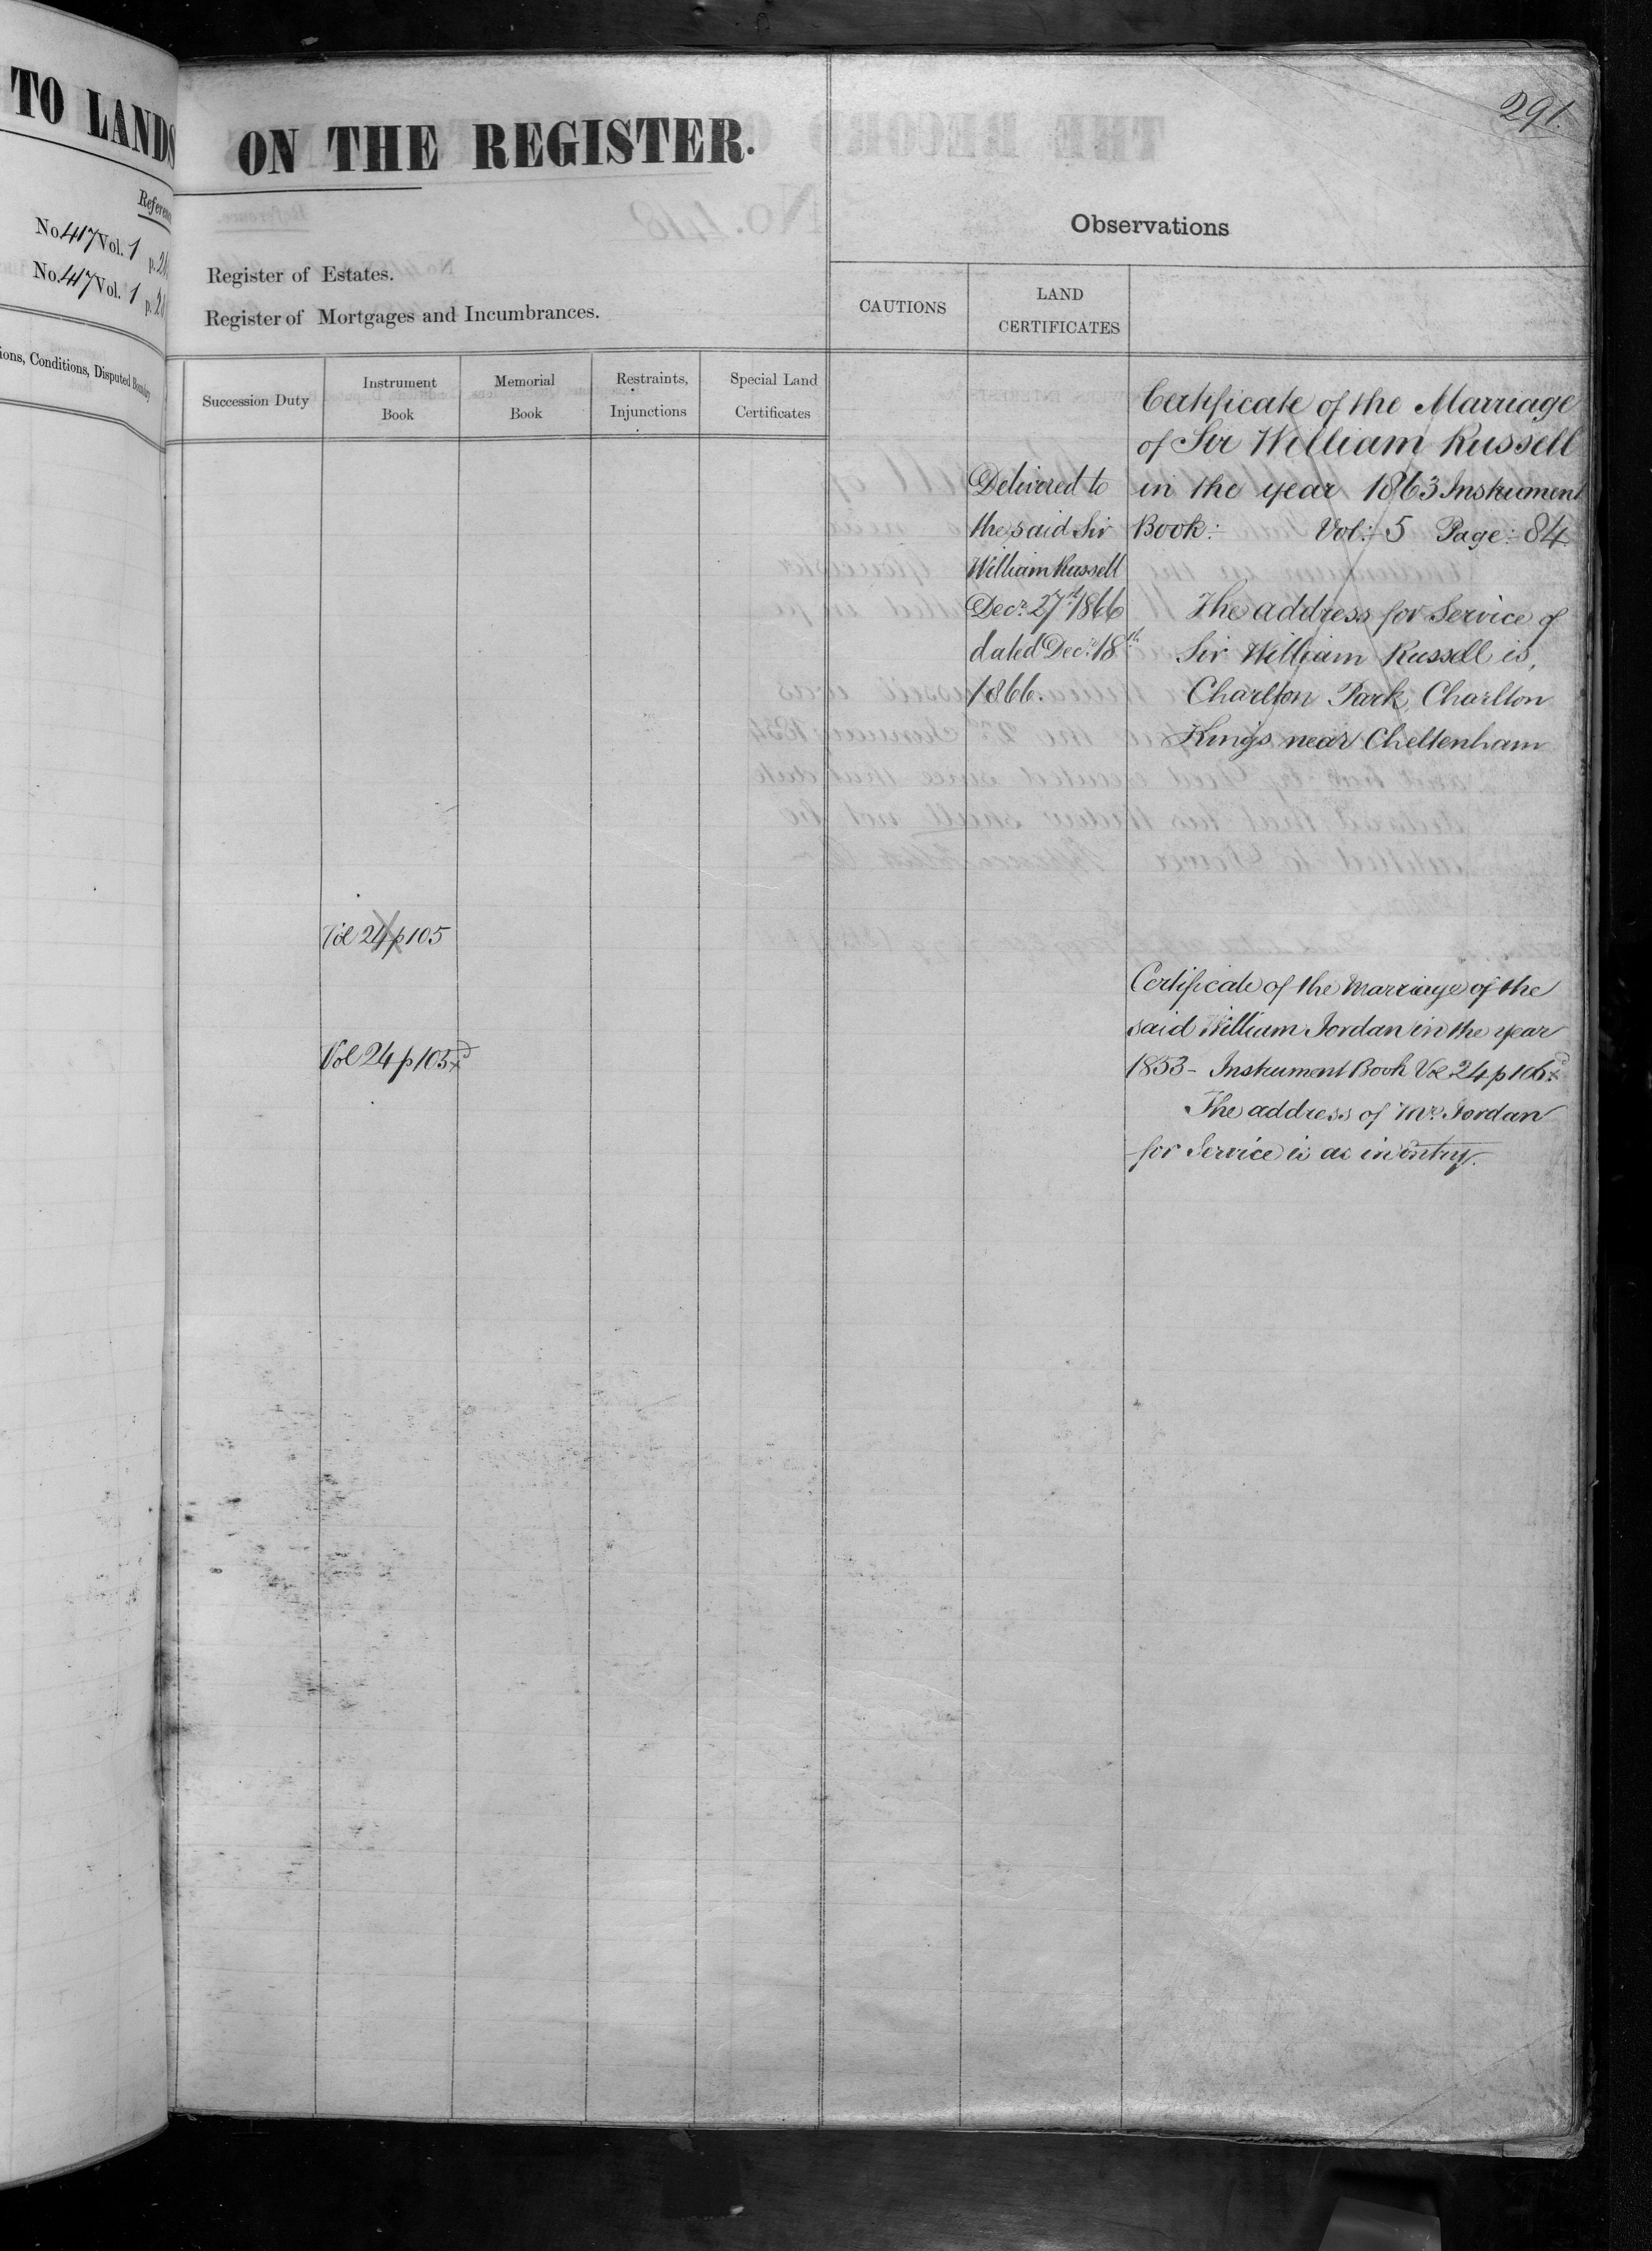 TO LANDS
Referen
No. 417 Vol. 1
No. 417 Vol. 1
ions, Conditions, Disputed Boundary
291.
ON THE REGISTER.
Register of Estates.
Register of Mortgages and Incumbrances.
Observations
CAUTIONS
LAND
CERTIFICATES
Succession Duty
Instrument
Book
Memorial
Book
Restraints,
Injunctions
Special Land
Certificates
Vol 24 p 105
Vol 24 p 105
Delivered to
the said Sir
William Russell
Decr. 27th 1866
dated Decr. 18th
1866.
Certificate of the Marriage
of Sir William Russell
in the year 1863 Instrument
Book:- Vol:- 5 Page:- 84.
The address for Service of
Sir William Russell is,
Charlton Park, Charlton
Kings near Cheltenham
Certificate of the Marriage of the
said William Jordan in the year
1853 - Instrument Book Vol 24 p 106
The address of Mr. Jordan
for Service is as in entry.